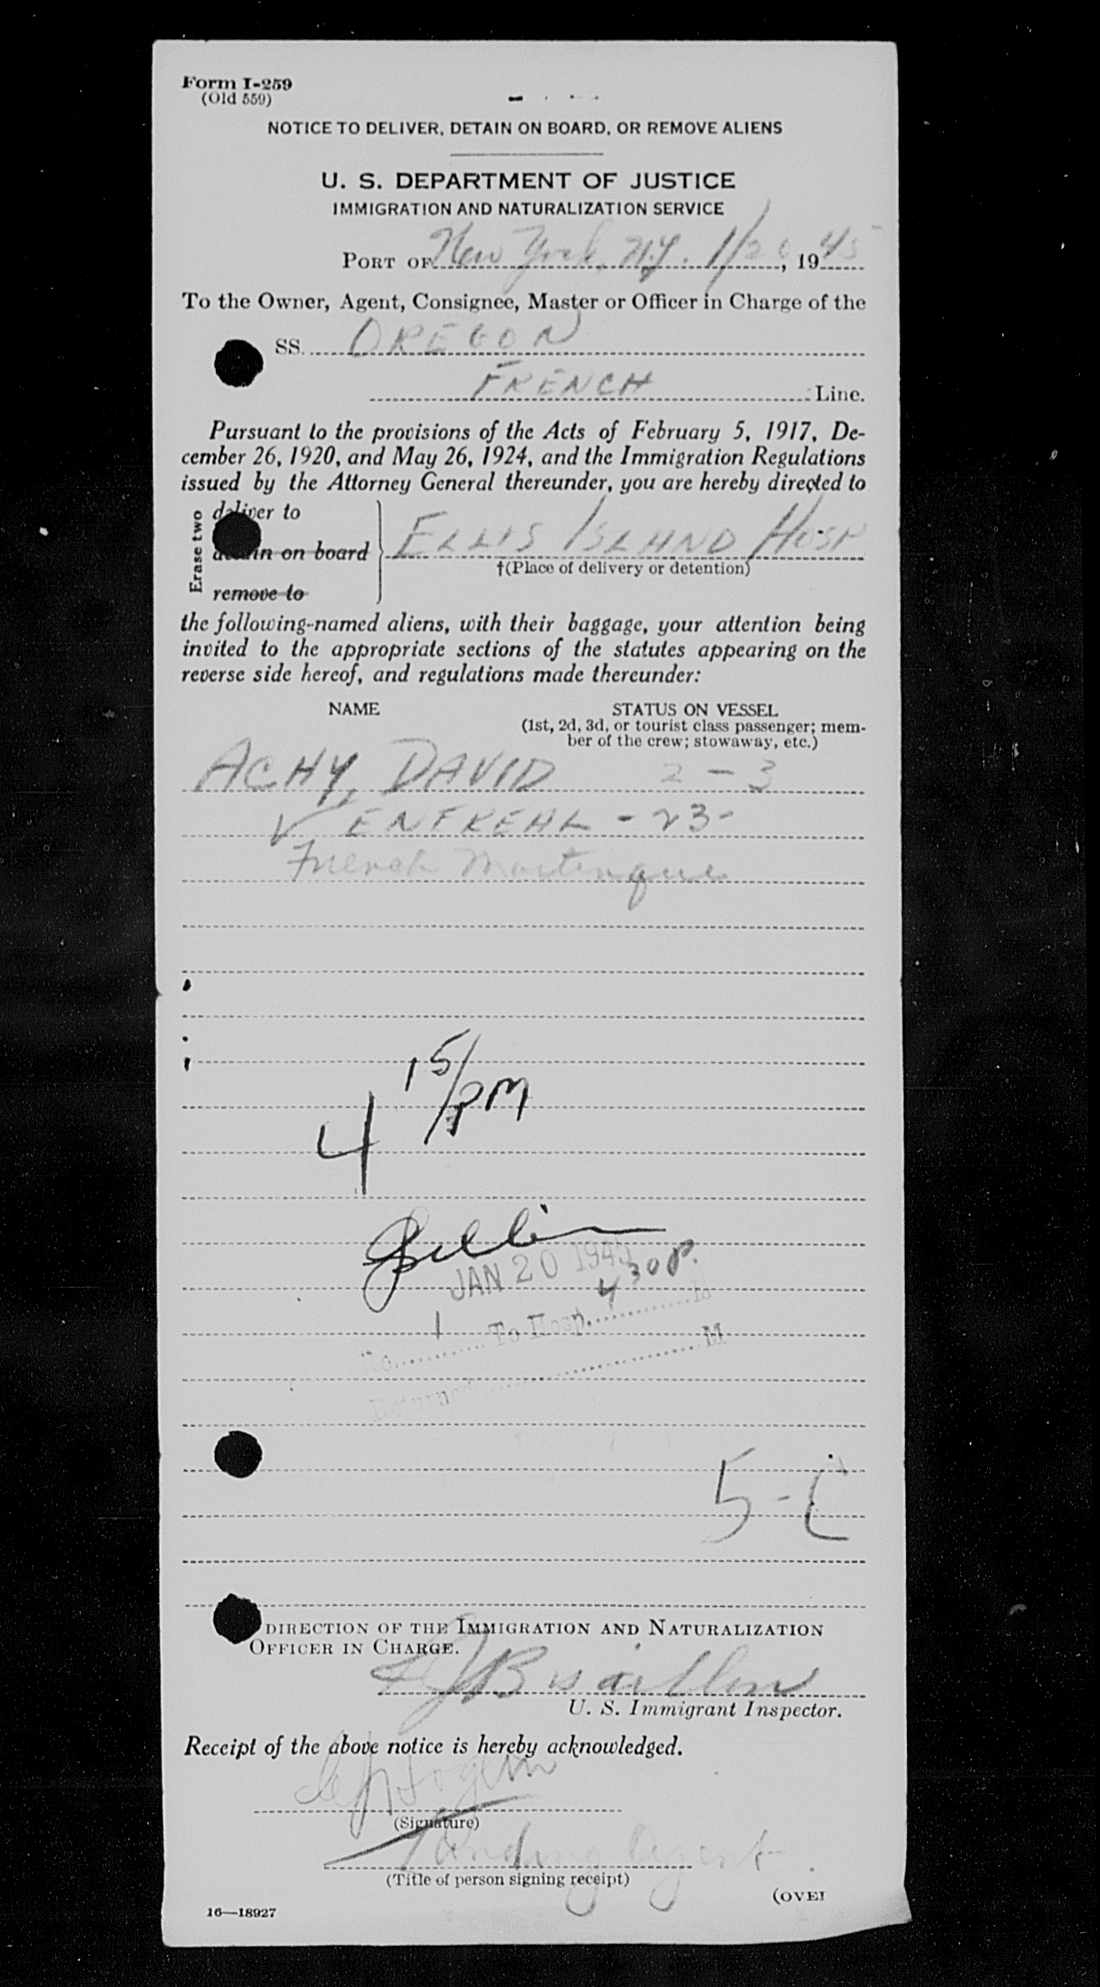 Form I-259
(Old 559)
NOTICE TO DELIVER, DETAIN ON BOARD, OR REMOVE ALIENS
U. S. DEPARTMENT OF JUSTICE
IMMIGRATION AND NATURALIZATION SERVICE
PORT OF New York, N.Y. 1/20, 1945
To the Owner, Agent, Consignee, Master or Officer in Charge of the
SS. OREGON
FRENCH Line.
Pursuant to the provisions of the Acts of February 5, 1917, De-
cember 26, 1920, and May 26, 1924, and the Immigration Regulations
issued by the Attorney General thereunder, you are hereby directed to
Erase two
deliver to
detain on board
remove to
ELLIS ISLAND HOSP
†(Place of delivery or detention)
the following-named aliens, with their baggage, your attention being
invited to the appropriate sections of the statutes appearing on the
reverse side hereof, and regulations made thereunder:
NAME STATUS ON VESSEL
(1st, 2d, 3d, or tourist class passenger; mem-
ber of the crew; stowaway, etc.)
ACHY, DAVID 2-3
- 23-
French Martinque
4 15/PM
JAN 20 1945
No. 1 To Hosp. 4 30 P. M
Returned M
5-C
DIRECTION OF THE IMMIGRATION AND NATURALIZATION
OFFICER IN CHARGE.
U. S. Immigrant Inspector.
Receipt of the above notice is hereby acknowledged.
(Signature)
Landing Agent
(Title of person signing receipt)
16—18927
(OVE